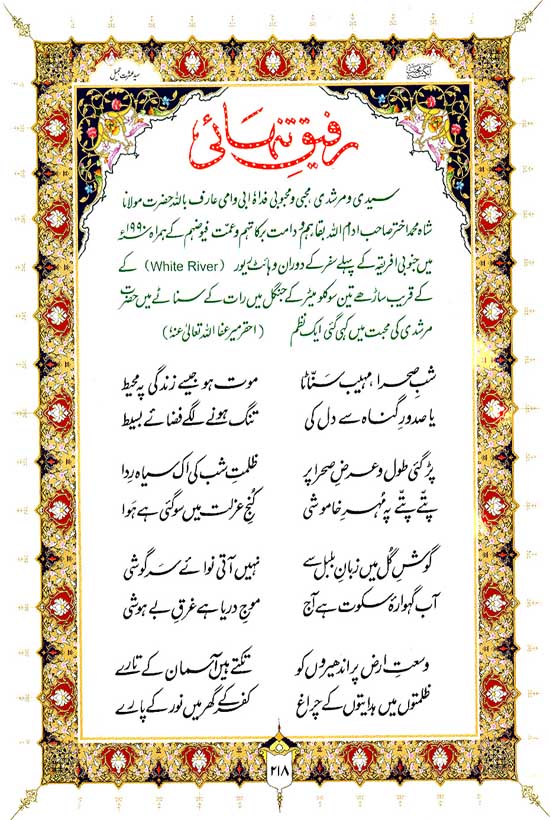 سید عشرت جمیل
رفیقِ تنہائی
سیدی و مرشدی، محبی و محبوبی فداہٗ ابی وامی عارف باللہ حضرت مولانا
شاہ محمد اختر صاحب ادام اللہ بقاءہم و دامت برکاتہم و عمّت فیوضہم کے ہمراہ ۱۹۹۰ء
میں جنوبی افریقہ کے پہلے سفر کے دوران وہائٹ ریور (White River) کے
کے قریب ساڑھے تین سو کلو میٹر کے جنگل میں رات کے سناٹے میں حضرت
مرشدی کی محبت میں کہی گئی ایک نظم (احقر میر عفا اللہ تعالیٰ عنہٗ)
شبِ صحرا، مہیب سنّاٹا موت ہو جیسے زندگی پہ محیط
یا صدورِ گناہ سے دل کی تنگ ہونے لگے فضائے بسیط
پڑ گئی طول و عرضِ صحرا پر ظلمتِ شب کی اک سیاہ رِدا
پتّے پتّے پہ مُہرِ خاموشی کُنجِ عزلت میں سو گئی ہے ہَوا
گوشِ گُل میں زبانِ بلبل سے نہیں آتی نوائے سرگوشی
آب گہوارۂ سکوت ہے آج موجِ دریا ہے غرقِ بے ہوشی
وسعتِ ارض پر اندھیروں کو تکتے ہیں آسمان کے تارے
ظلمتوں میں ہدایتوں کے چراغ کفر کے گھر میں نور کے پارے
۲۱۸